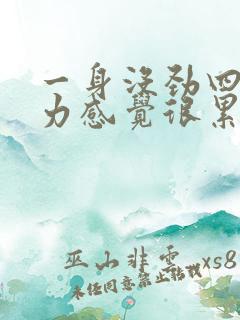 一身没劲四
力感觉很累
巫山非云 xs8
未经同意禁止转载